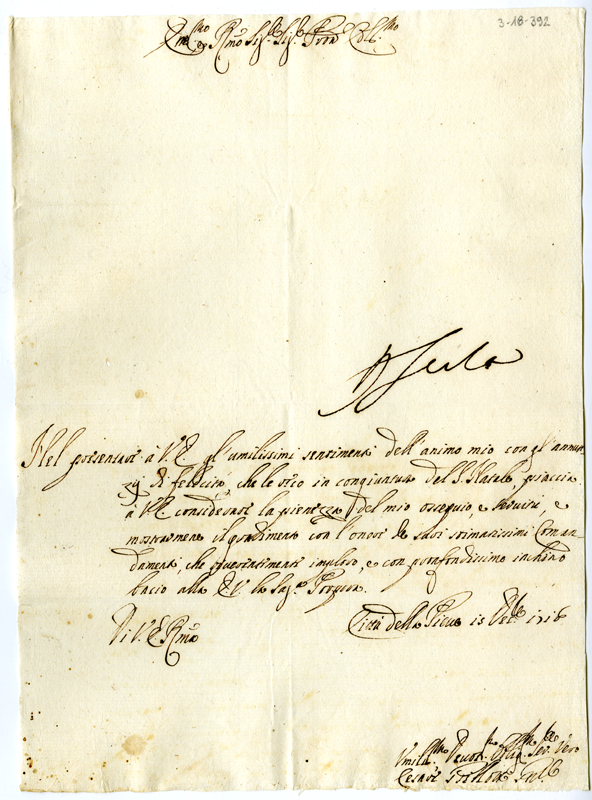 3-18-392
Em.mo e Rmo Sig.re Sig.r Pron Col.mo
Nel presentare à V.E. gl'umilissimi sentimenti dell'animo mio con gl'annun-
zÿ di felicità, che le reco in congiuntura del S. Natale, piaccia
à V.E. considerare la pienezza del mio ossequio, e servirù, e
mostrarmene il gradimento con l'onore de suoi stimatissimi Coman-
damenti, che riverentemente imploro, e con profondissimo inchino
bacio alla E.V. la Sag.ra Porpora.
Di V.E. Rma
Città della Pieve 15 Xbre 1716
Umill.mo Devot.mo Obblig.mo Ser. Vero
Cesare